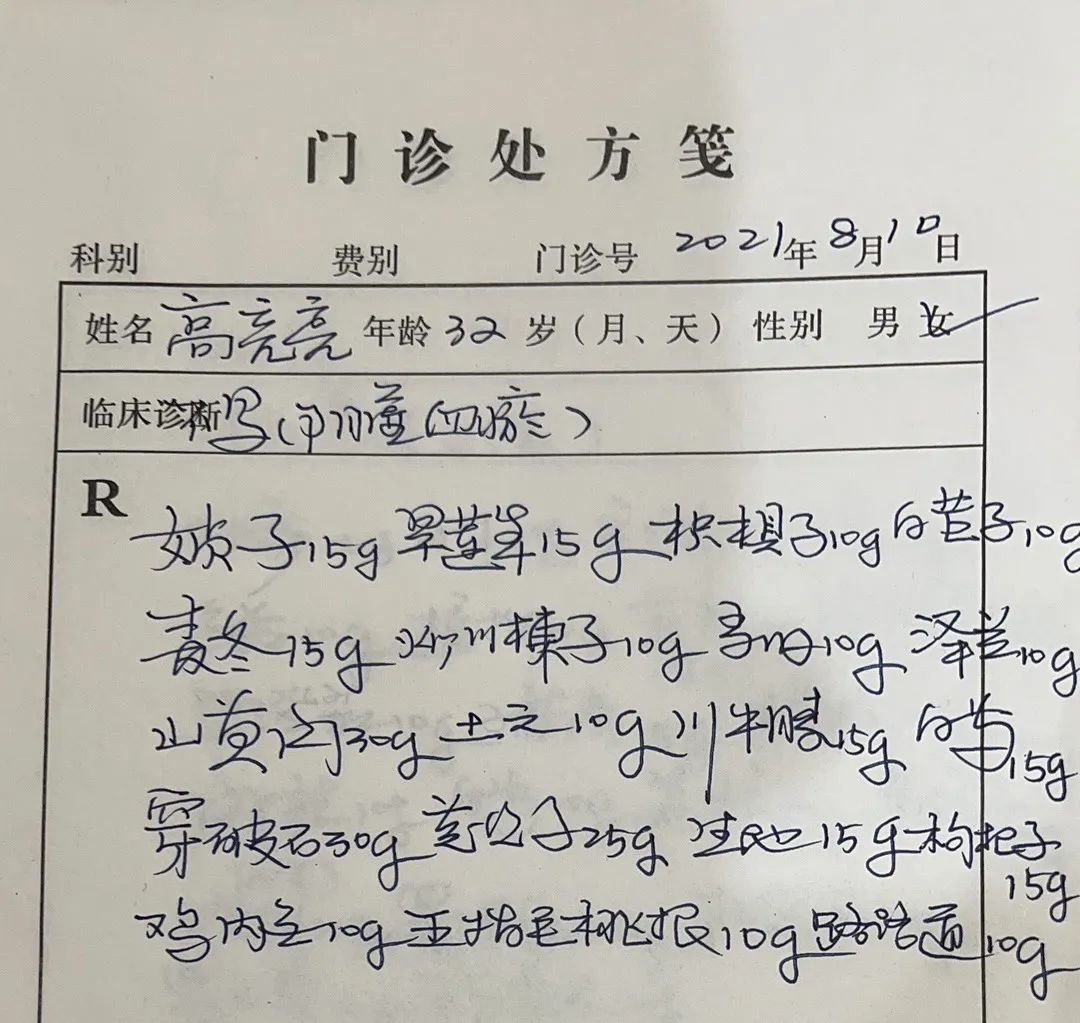 门诊处方笺
科别 费别 门诊号 2021年8月10日
姓名 高亮亮 年龄 32 岁（月、天） 性别 男 女
临床诊断
R
女贞子15g 旱莲草15g 枳椇子10g 10g
麦冬15g 川楝子10g 10g 泽兰10g
山黄 30g 土元10g 川牛膝15g 白芍15g
穿破石30g 25g 生地15g 枸杞子15g
鸡内金10g 猕桃根10g 路路通10g